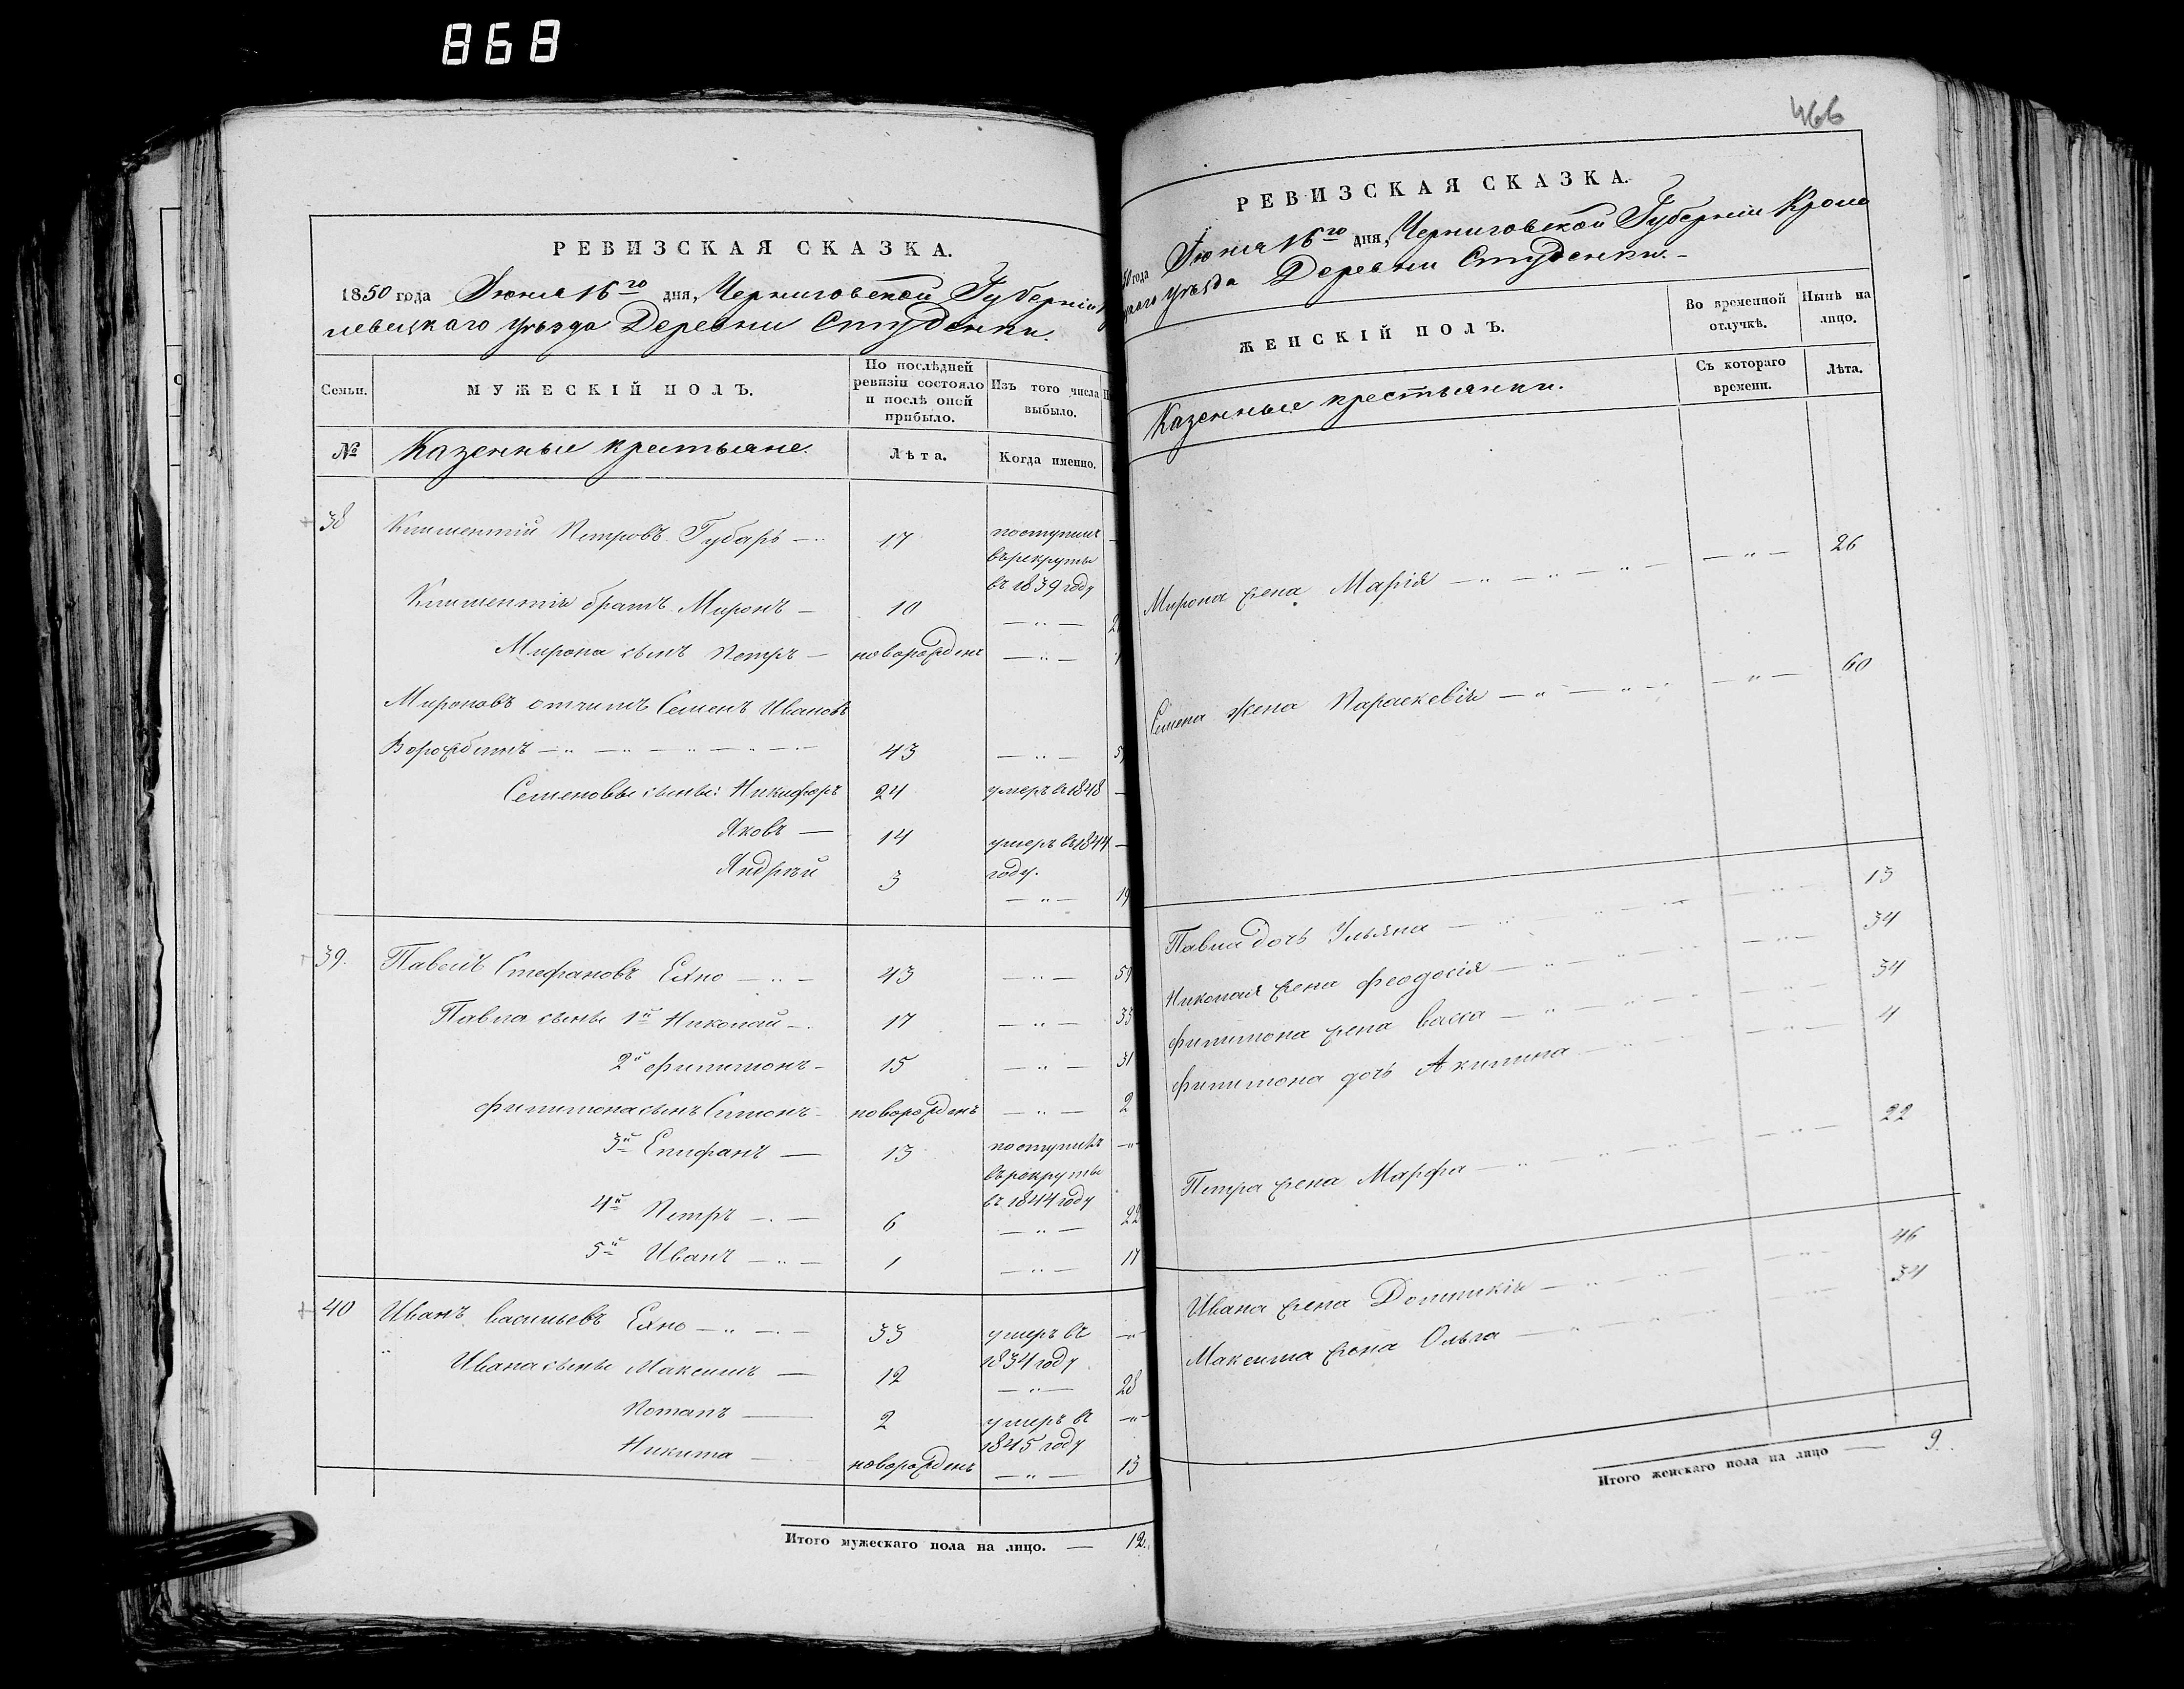 868
РЕВИЗСКАЯ СКАЗКА.
1850 года Іюня 16го дня, Черниговской Губерніи
левецкаго уѣзда Деревни Студенки.
Семьи. МУЖЕСКІЙ ПОЛЪ. По послѣдней ревизіи состояло и послѣ оной прибыло. Изъ того числа выбыло.
№ Казенные крестьяне. Лѣта. Когда именно.
38 Климентій Петровъ Губарь — 17 поступилъ
въ рекруты
въ 1839 году
Климентія братъ Миронъ — 10 — „ —
Мирона сынъ Петръ — новорожденъ — „ —
Мироновъ отчимъ Семенъ Ивановъ
Ворожбитъ — „ — „ — „ — „ — 43 — „ —
Семеновы сыны: Никифоръ 24 умеръ въ 1848 —
Яковъ — 14 умеръ въ 1844 —
году.
Андрѣй 3 — „ — 19
39. Павелъ Стефановъ Ехно — „ — 43 — „ — 59
Павла сыны 1й Николай — 17 — „ — 33
2й Филимонъ — 15 — „ — 31
Филимона сынъ Симонъ — новорожденъ — „ — 2
3й Епифанъ — 13 поступилъ — „ —
въ рекруты
въ 1844 году
4й Петръ — 6 — „ — 22
5й Иванъ — „ — 1 — „ — 17
40 Иванъ Васильевъ Ехно — „ — 33 умеръ въ — „ —
1834 году
Ивана сыны Максимъ — 12 — „ — 28
Потапъ — 2 умеръ въ — „ —
1845 году
Никита — новорожденъ — „ — 13
Итого мужескаго пола на лицо. — 12.
466
РЕВИЗСКАЯ СКАЗКА.
50 года Іюня 16го дня, Черниговской Губерніи Кроле
цкаго уѣзда Деревни Студенки. —
ЖЕНСКІЙ ПОЛЪ. Во временной отлучкѣ. Нынѣ на лицо.
Съ котораго времени. Лѣта.
Казенные крестьянки.
Мирона жена Марія — „ — „ — „ — — „ — 26
Семена жена Параскевія — „ — „ — — „ — 60
Павла дочь Ульяна — „ — „ — „ — — „ — 13
Николая жена Феодосія — „ — „ — — „ — 34
Филимона жена Васса — „ — „ — — „ — 34
Филимона дочь Акилина — „ — — „ — 4
Петра жена Марфа — „ — „ — — „ — 22
Ивана жена Домникія — „ — „ — — „ — 46
Максима жена Ольга — „ — „ — — „ — 34
Итого женскаго пола на лицо — 9.